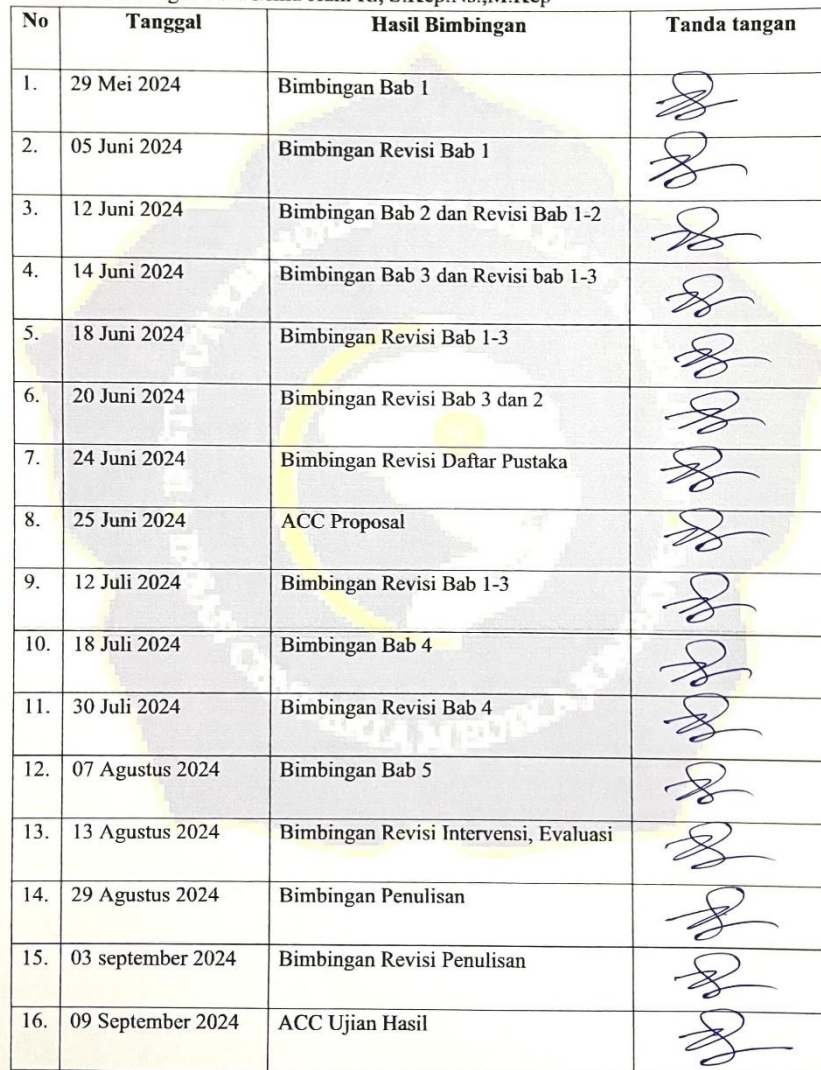 No Tanggal Hasil Bimbingan Tanda tangan
1. 29 Mei 2024 Bimbingan Bab 1
2. 05 Juni 2024 Bimbingan Revisi Bab 1
3. 12 Juni 2024 Bimbingan Bab 2 dan Revisi Bab 1-2
4. 14 Juni 2024 Bimbingan Bab 3 dan Revisi bab 1-3
5. 18 Juni 2024 Bimbingan Revisi Bab 1-3
6. 20 Juni 2024 Bimbingan Revisi Bab 3 dan 2
7. 24 Juni 2024 Bimbingan Revisi Daftar Pustaka
8. 25 Juni 2024 ACC Proposal
9. 12 Juli 2024 Bimbingan Revisi Bab 1-3
10. 18 Juli 2024 Bimbingan Bab 4
11. 30 Juli 2024 Bimbingan Revisi Bab 4
12. 07 Agustus 2024 Bimbingan Bab 5
13. 13 Agustus 2024 Bimbingan Revisi Intervensi, Evaluasi
14. 29 Agustus 2024 Bimbingan Penulisan
15. 03 september 2024 Bimbingan Revisi Penulisan
16. 09 September 2024 ACC Ujian Hasil